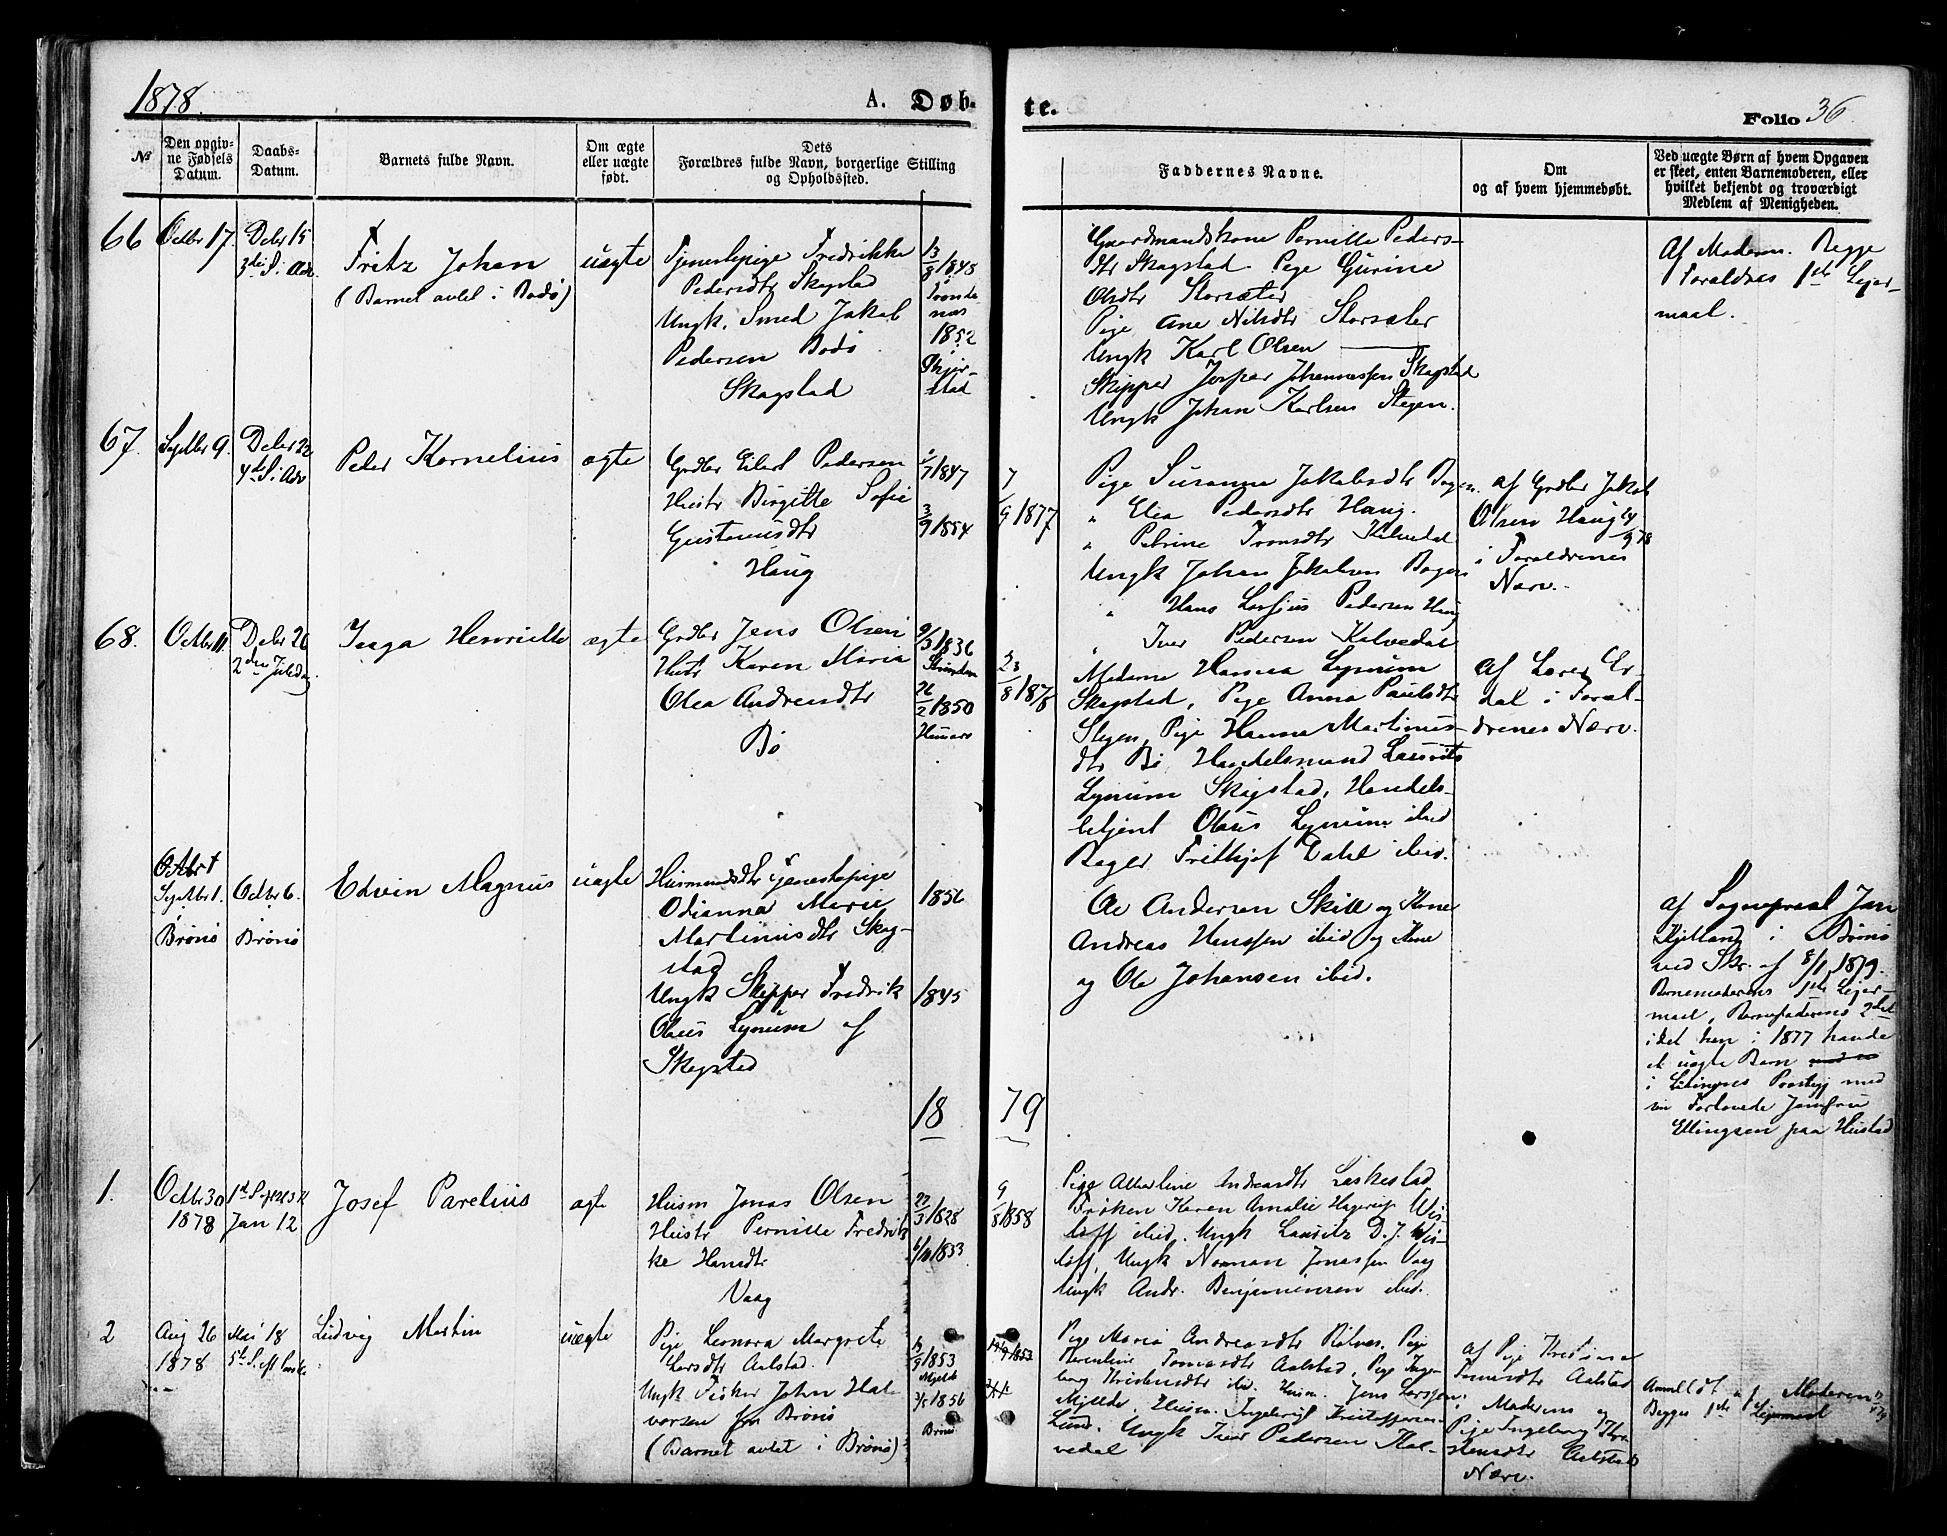 1878.
A. Døb-
te.
Folio 36.
№
Den opgiv-
ne Fødsels
Datum.
Daabs-
Datum.
Barnets fulde Navn.
Om ægte
eller uægte
født.
Dets
Forældres fulde Navn, borgerlige Stilling
og Opholdssted.
Faddernes Navne.
Om
og af hvem hjemmedøbt.
Ved uægte Børn af hvem Opgaven
er skeet, enten Barnemoderen, eller
hvilket bekjendt og troværdigt
Medlem af Menigheden.
66
Octbr 17.
Decbr 15
3die S. Adv.
Fritz Johan
(Barnet avlet i Bodø)
uægte
Tjenestepige Fredrikke
Pedersdtr Skagstad
Ungk. Smed Jakob
Pedersen Bodø
Skagstad
13/8 1845
1852
Skjer-
stad
Gaardmandskone Pernille Peders-
dtr Skagstad. Pige Gurine
Olsdtr Storsæter
Pige Ane Nilsdtr Storsæter
Ungk Karl Olsen
Skipper Jesper Johannessen Skagstad
Ungk Johan Karlsen Stegen.
Af Moderen. Begge
Forældres 1ste Leier-
maal.
67.
Septbr 9.
Decbr 22
4de S. Adv
Peder Kornelius
ægte
Grdbr Eilert Pedersen
Hustr Birgitte Sofie
Gustavusdtr
Haug
7 1847
3/9 1854
7/9 1877
Pige Susanna Jakobsdtr Bogen.
" Elea Pedersdtr Haug.
" Petrine Ivarsdtr Kalvedal
Ungk Johan Jakobsen Bogen
" Hans Pedersen Haug
" Iver Pedersen Kalvedal
af Grdbr Jakob
Olsen Haug 14/9 78
i Forældrenes
Nærv.
68.
Octbr 11.
Decbr 26
2den Juledag
Inga Henriette
ægte
Grdbr Jens Olsen
Hustr Karen Maria
Olea Andreasdtr
Bø
9/3 1836
26/2 1850
23/8 1876
Madame Hanna Lynum
Skagstad, Pige Anna Paulsdtr
Stegen, Pige Hanna Martinus-
dtr Bø Handelsmand Laurits
Lynum Skagstad, Handels-
betjent Olaus Lynum ibid
Bager Frithjof Dahl ibid.
af Lærer Er-
dal i Foræl-
drenes Nærv.
Octbr 1
Septbr 1.
Brønø
Octbr 6.
Brønø
Edvin Magnus
uægte
Husmandsdtr Tjenestepige
Odianna Marie
Martinusdtr Skag-
stad
Ungk Skipper Fredrik
Olaus Lynum af
Skagstad
1856
1845
Ole Andersen Skille og Kone
Andreas Hanssen ibid og Kone
og Ole Johansen ibid.
af Sognepræst Jan
Kjelland i Brønø
ved Skr. af 8/1 1879.
Barnemoderens 1ste Leier-
maal, Barnefaderens 2det
idet han i 1877 havde
et uægte Barn
i Præstegj med
sin Forlovede Jomfru
Ellingsen paa Hustad
1879
1.
Octbr 30
1878
Jan 12
Josef Parelius
ægte
Husm Jonas Olsen
Hustr Pernille Fredrik-
ke Hansdtr
Vaag
22/3 1828
6/11 1833
9/8 1858
Pige Albertine Andreasdtr Leskestad
Frøken Karen Amalie Hagerup Wis-
løff ibid. Ungk Lauritz D. J. Wis-
løff, Ungk Norman Jonassen Vaag
Ungk Andr. Benjaminsen ibid.
2
Aug 26
1878
Mai 18
5te S. eft Paaske
Ludvig Martin
uægte
Pige Leonora Margrete
Larsdtr Aalstad.
Ungk Fisker John Hal-
vorsen fra Brønø
(Barnet avlet i Brønø)
13/9 1853
1856
Brønø
1853
Pige Maria Andreasdtr Pige
Tomasdtr Aalstad, Pige Inge-
borg ibid. Husm. Jens Larssen
Mjelde, Husm. Ingebrigt Kristoffersen
Lund. Ungk Iver Pedersen Kal-
vedal
af Pige Kristina
Tomasdtr Aalstad
i Moderens og
Pige Ingeborg
Aalstads
Nærv.
Anmeldt af Moderen
Begges 1ste Leiermaal